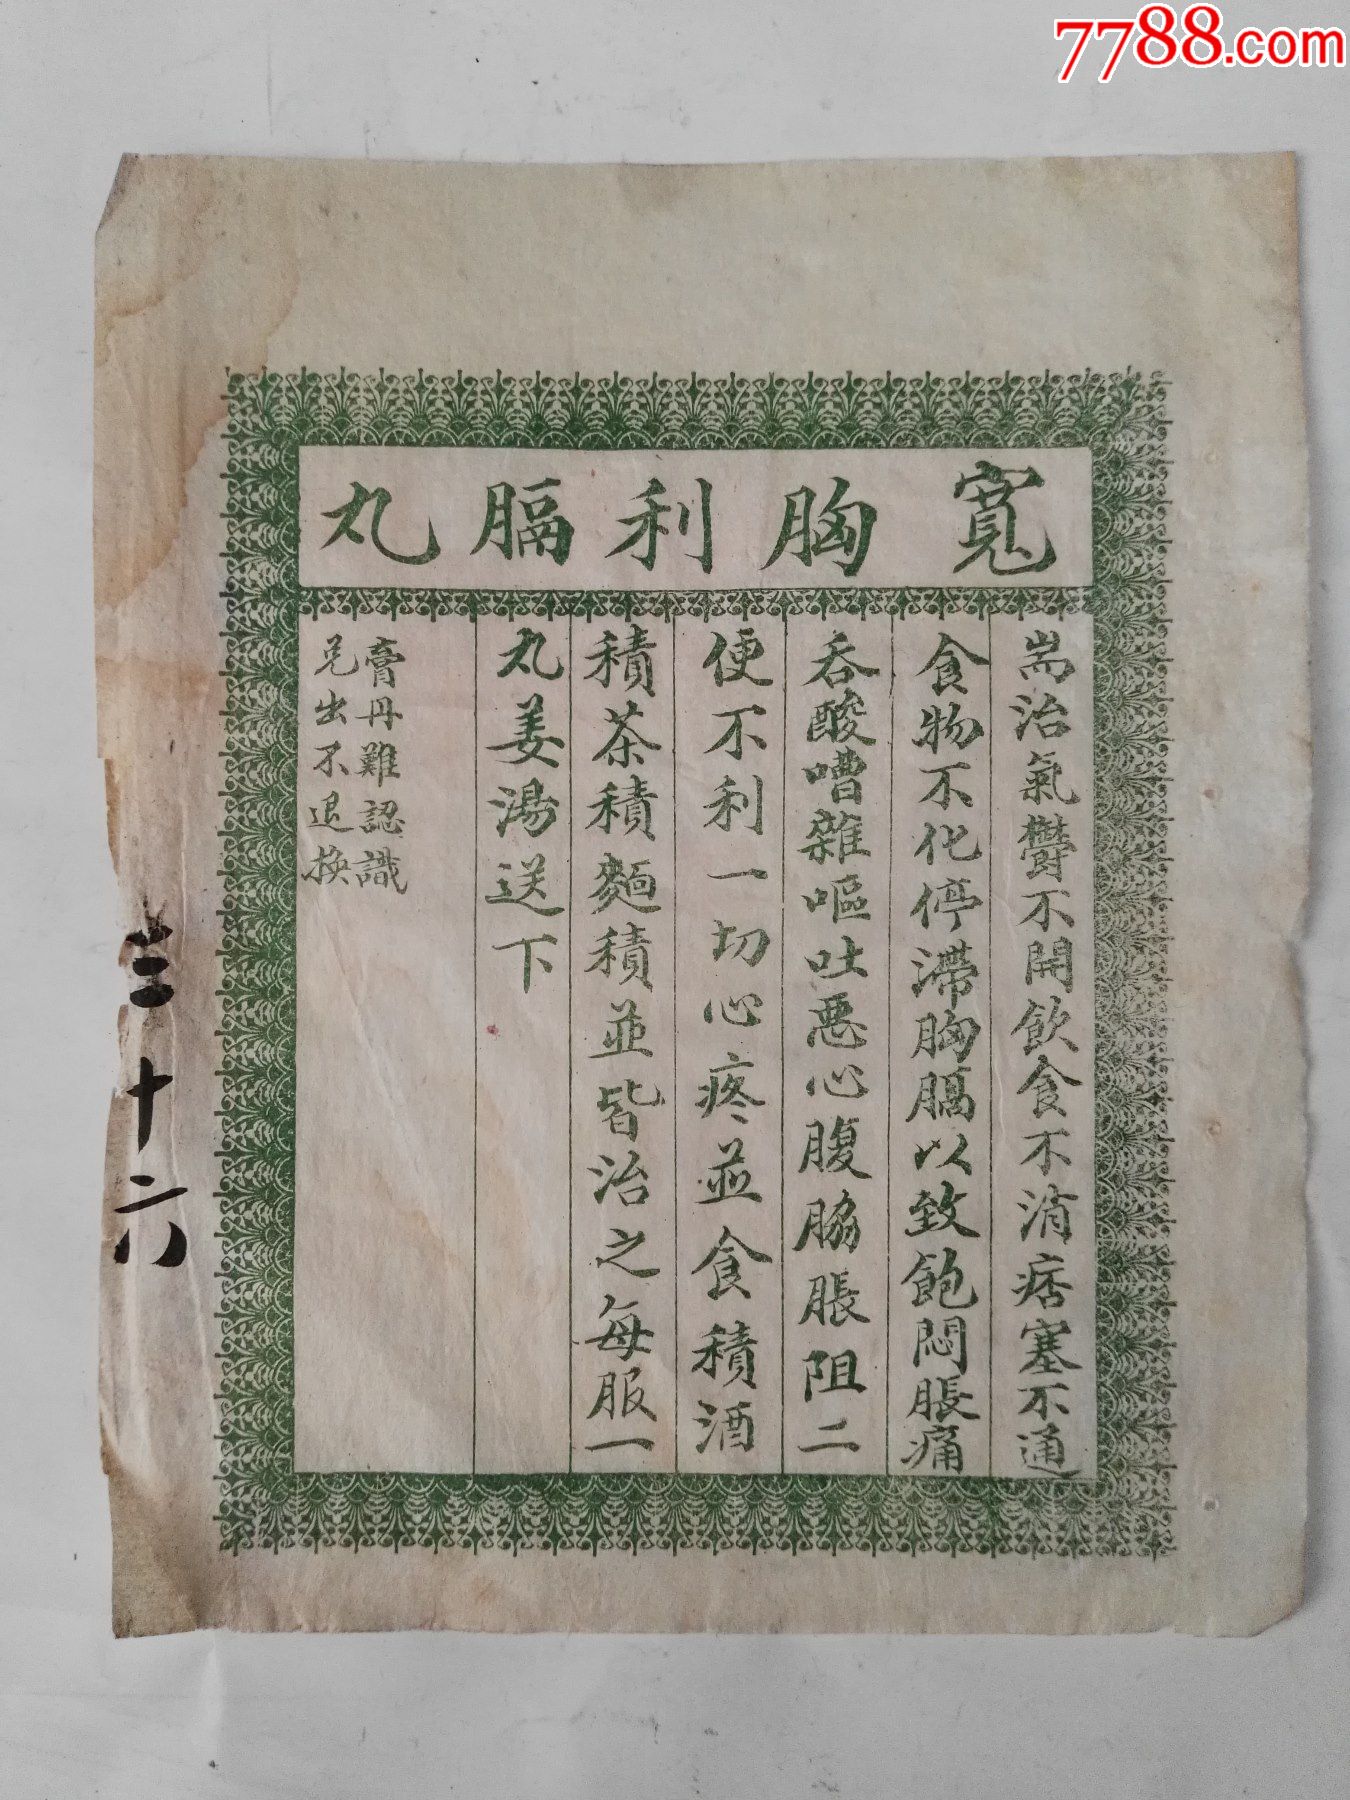 7788.com
寬胸利膈丸
耑治氣鬱不開飲食不消痞塞不通
食物不化停滯胸膈以致飽悶脹痛
吞酸嘈雜嘔吐惡心腹脇脹阻二
便不利一切心疼並食積酒
積茶積麵積並皆治之每服一
丸姜湯送下
膏丹難認識
兌出不退換
三十六